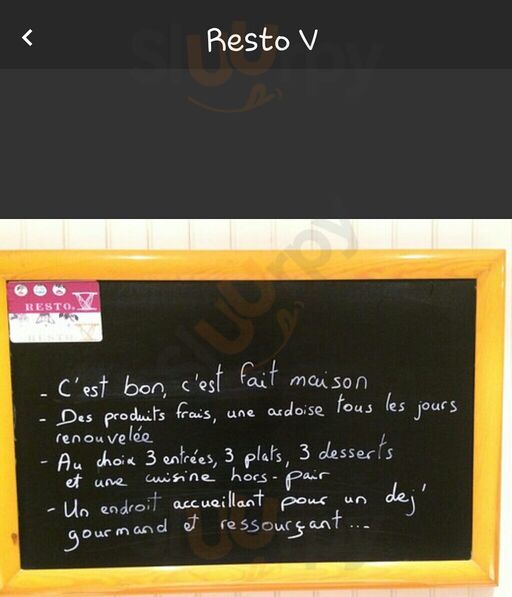 Resto V
sluurpy
sluurpy
RESTO. V
RESTO V
- C'est bon, c'est fait maison
- Des produits frais, une ardoise tous les jours
renouvelée
- Au choix 3 entrées, 3 plats, 3 desserts
et une cuisine hors-pair
- Un endroit accueillant pour un dej'
gourmand et ressourçant...